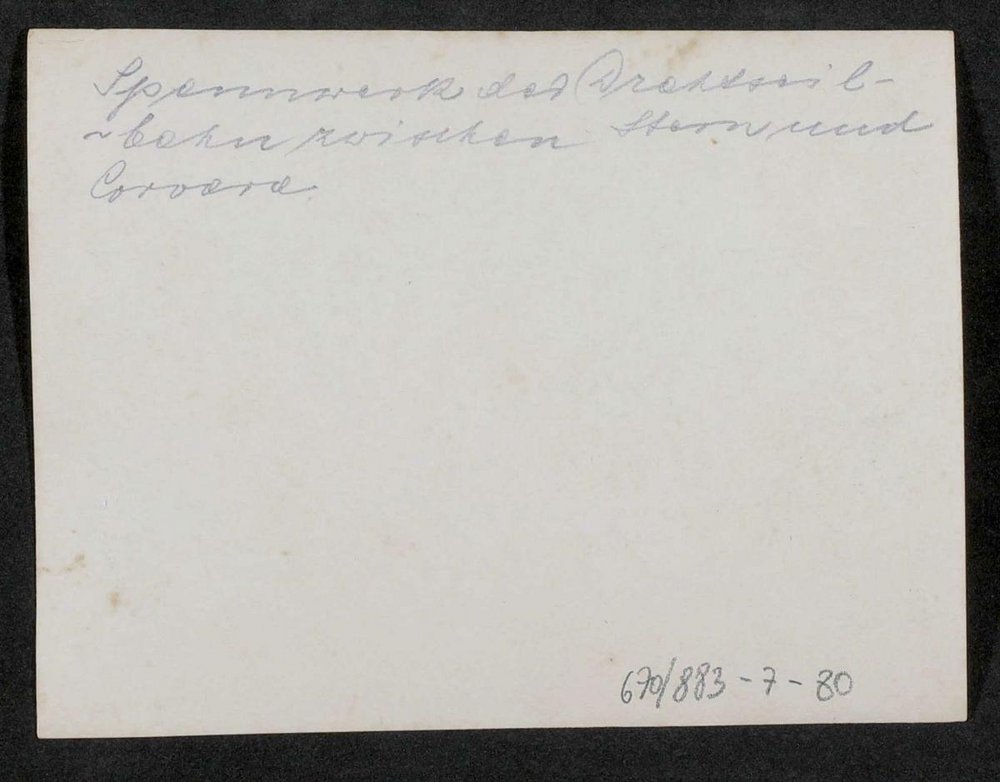 Spannwerk der Drahtseil-
~bahn zwischen Stern und
Corvara.
670/883-7-80